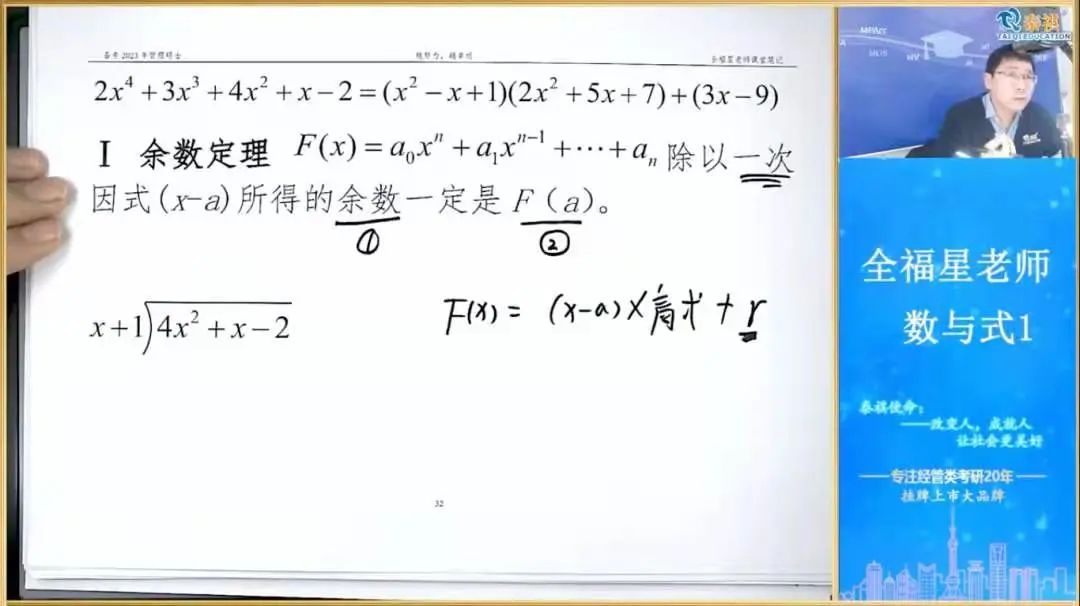 备考 2023 年管理硕士
越努力，越幸运
全福星老师课堂笔记
2x⁴+3x³+4x²+x−2=(x²−x+1)(2x²+5x+7)+(3x−9)
Ⅰ 余数定理 F(x)=a₀xⁿ+a₁xⁿ⁻¹+⋯+aₙ 除以一次
因式(x-a)所得的余数一定是 F（a）。
① ②
x+1)4x²+x−2
F(x) = (x-a)×商式+r
32
MPAcc
泰祺
TAIQI EDUCATION
全福星老师
数与式1
泰祺使命：
——改变人，成就人
让社会更美好
——专注经管类考研20年——
挂牌上市大品牌